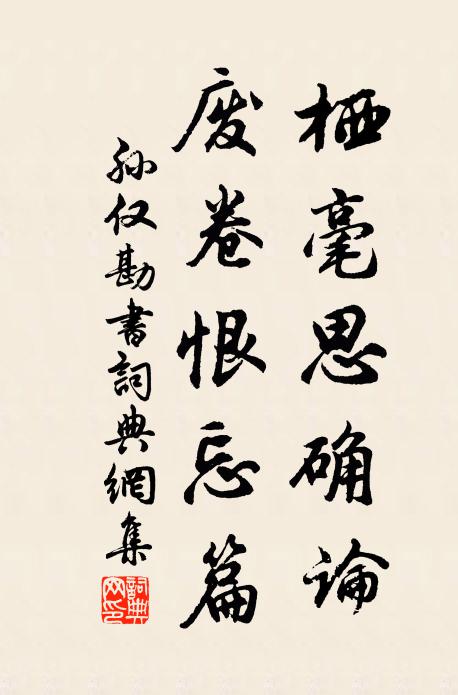 栖毫思确論
废卷恨忘篇
孙仅勘書詞典網集
詞典网印